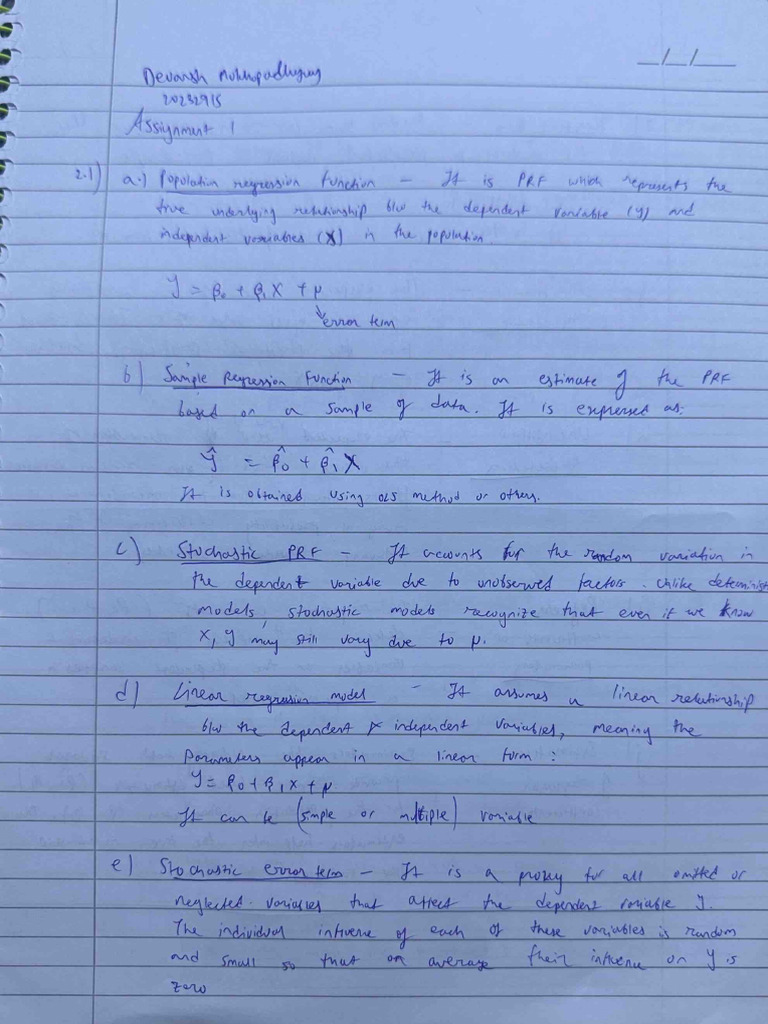 Devansh Mukhopadhyay
20232915
Assignment 1
__/__/__
2.1) a.) Population regression function - It is PRF which represents the
true underlying relationship b/w the dependent variable (y) and
independent variables (X) in the population.
Y = β₀ + β₁X + μ
↳ error term
b) Sample Regression Function - It is an estimate of the PRF
based on a sample of data. It is expressed as:
ŷ = β̂₀ + β̂₁X
It is obtained using OLS method or others.
c) Stochastic PRF - It accounts for the random variation in
the dependent variable due to unobserved factors. Unlike determinist
models, stochastic models recognize that even if we know
X, Y may still vary due to μ.
d) Linear regression model - It assumes a linear relationship
b/w the dependent & independent variables, meaning the
parameters appear in a linear form :
Y = β₀ + β₁X + μ
It can be (simple or multiple) variable
e) Stochastic error term - It is a proxy for all omitted or
neglected variables that affect the dependent variable Y.
The individual influence of each of these variables is random
and small so that on average their influence on Y is
zero